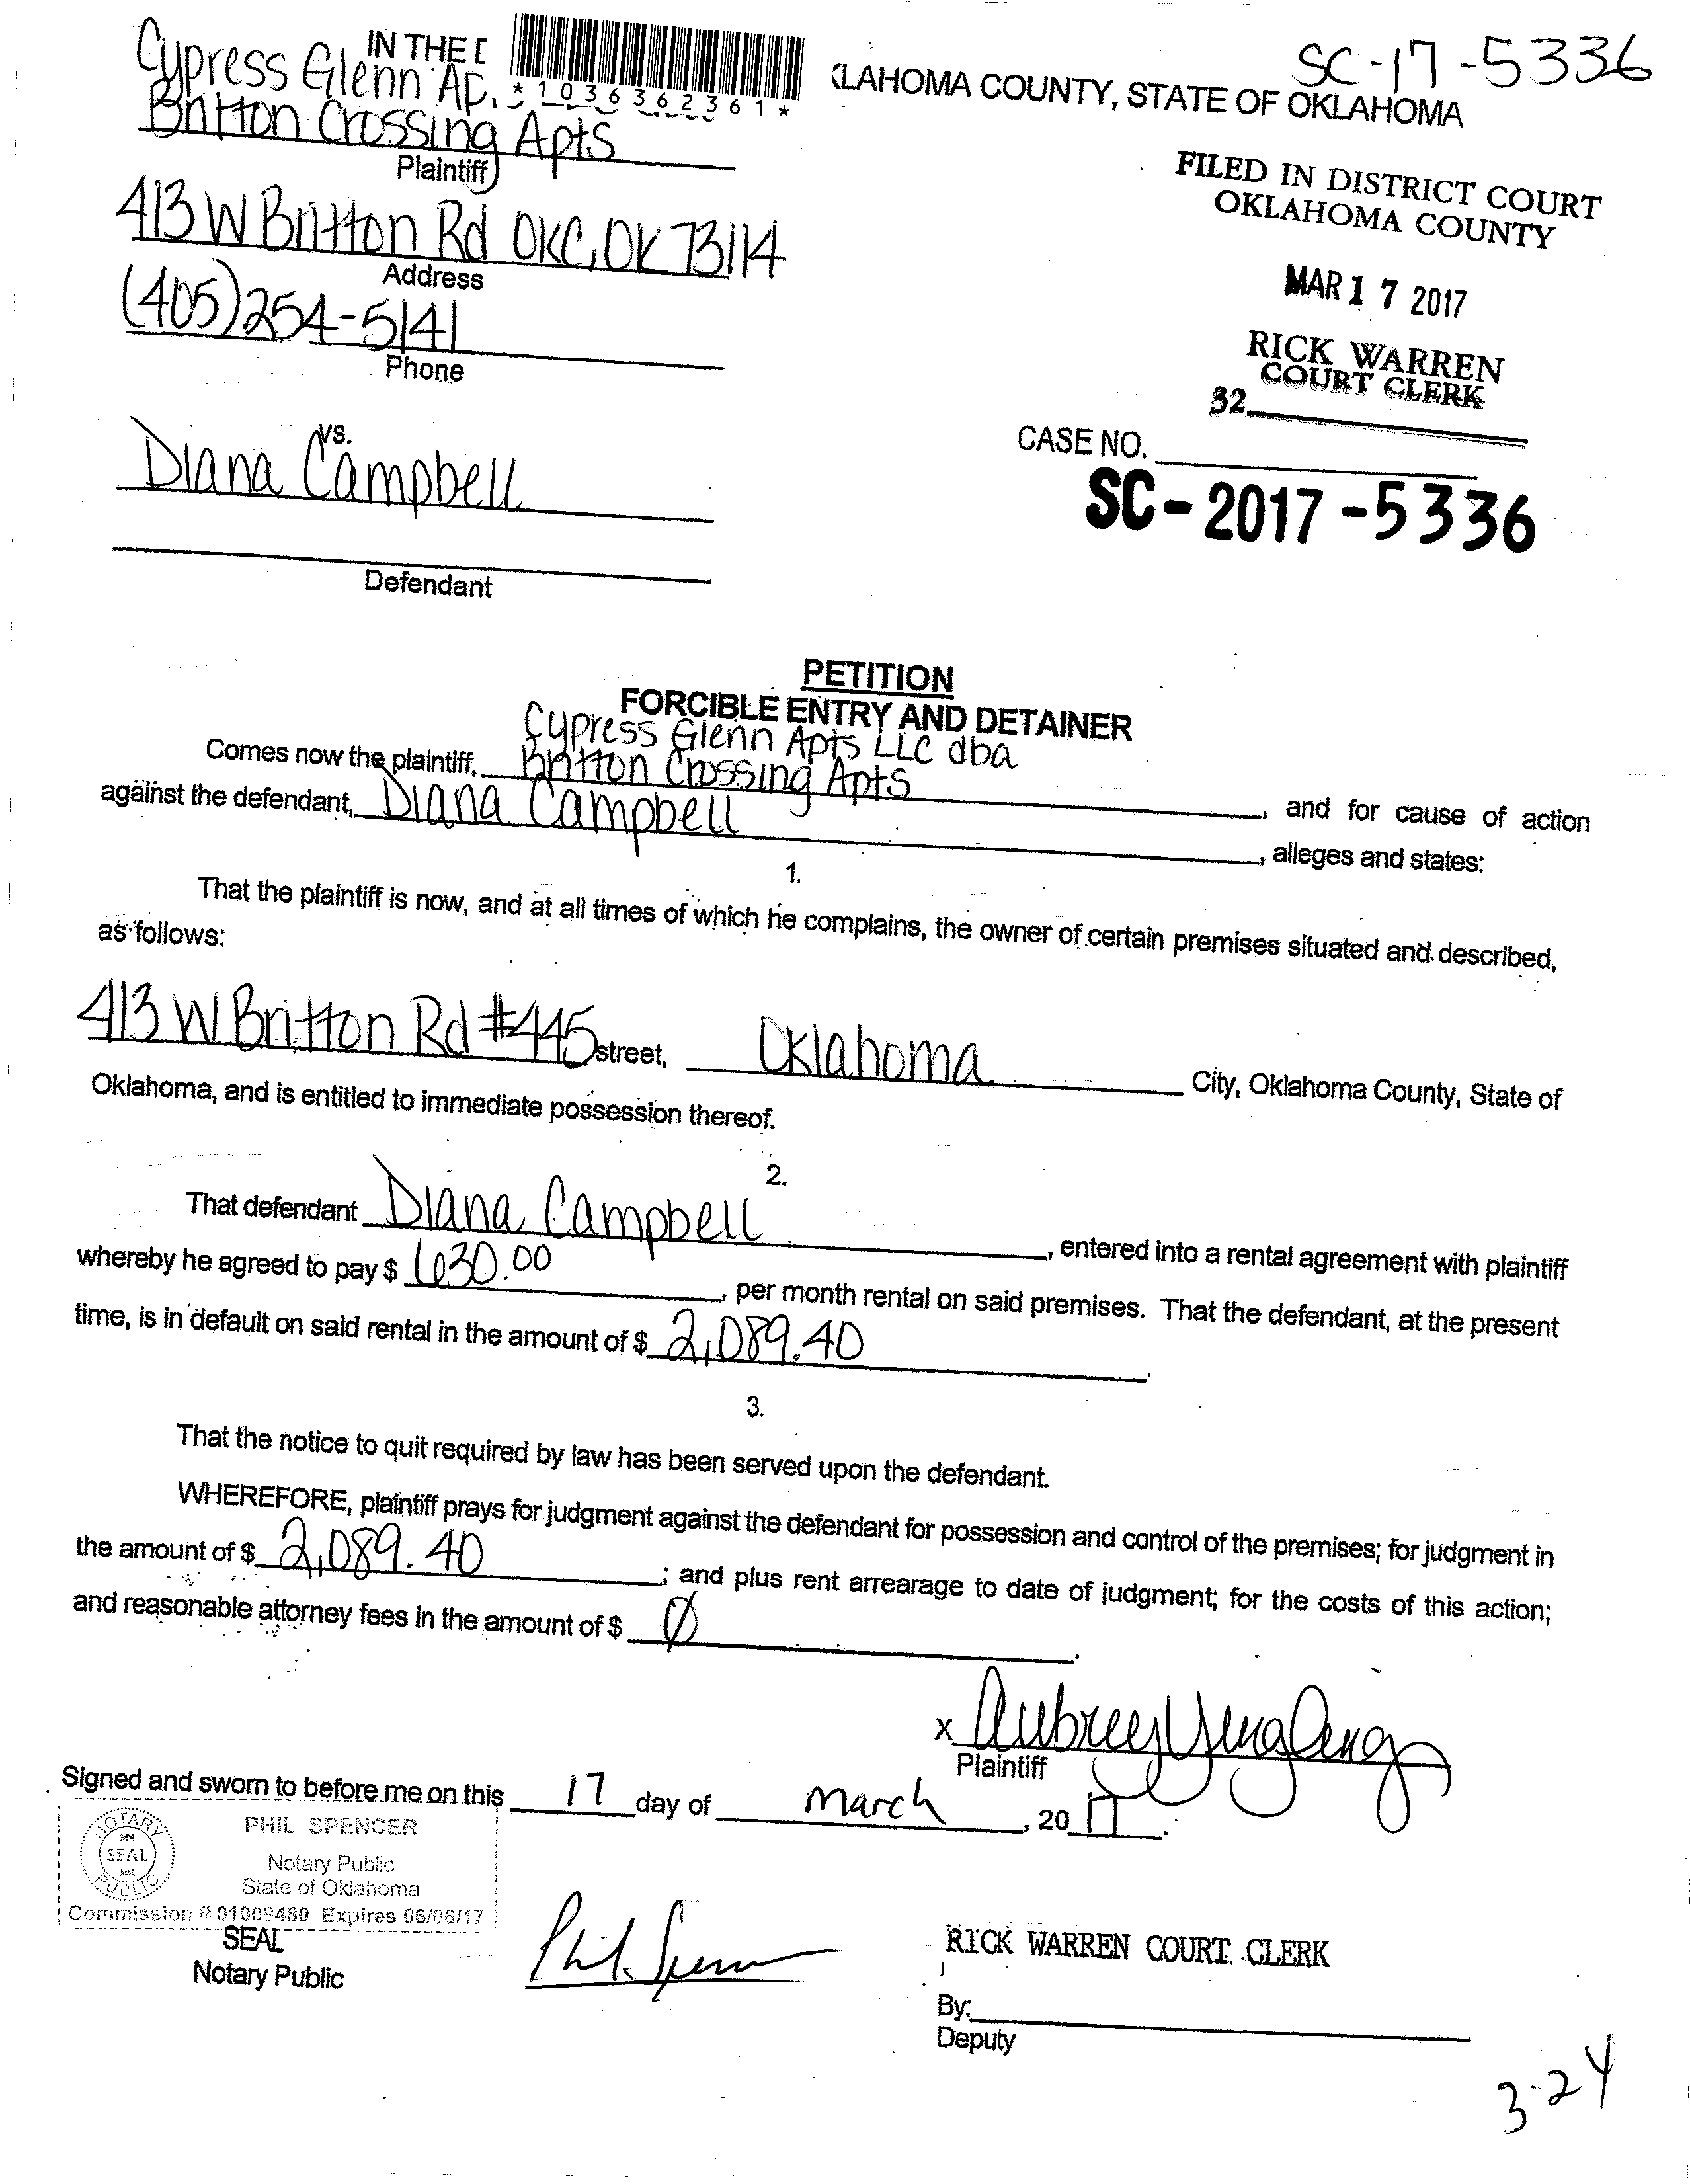 SC-17-5336
IN THE D
KLAHOMA COUNTY, STATE OF OKLAHOMA
*1036362361*
Cypress Glenn Ap
Britton Crossing Apts
Plaintiff
413 W Britton Rd OKC, OK 73114
Address
(405)254-5141
Phone
FILED IN DISTRICT COURT
OKLAHOMA COUNTY
MAR 17 2017
RICK WARREN
COURT CLERK
32
vs.
Diana Campbell
Defendant
CASE NO.
SC-2017-5336
PETITION
FORCIBLE ENTRY AND DETAINER
Cypress Glenn Apts LLC dba
Comes now the plaintiff, Britton Crossing Apts, and for cause of action
against the defendant, Diana Campbell, alleges and states:
1.
That the plaintiff is now, and at all times of which he complains, the owner of certain premises situated and described,
as follows:
413 W Britton Rd #445 street, Oklahoma City, Oklahoma County, State of
Oklahoma, and is entitled to immediate possession thereof.
2.
That defendant Diana Campbell, entered into a rental agreement with plaintiff
whereby he agreed to pay $ 630.00, per month rental on said premises. That the defendant, at the present
time, is in default on said rental in the amount of $ 2,089.40.
3.
That the notice to quit required by law has been served upon the defendant.
WHEREFORE, plaintiff prays for judgment against the defendant for possession and control of the premises; for judgment in
the amount of $ 2,089.40; and plus rent arrearage to date of judgment; for the costs of this action;
and reasonable attorney fees in the amount of $ Ø.
x Aubrey Yenglang
Plaintiff
Signed and sworn to before me on this 17 day of March, 2017.
NOTARY
SEAL
PUBLIC
PHIL SPENCER
Notary Public
State of Oklahoma
Commission # 01009480 Expires 06/06/17
SEAL
Notary Public
Phil Spencer
RICK WARREN COURT CLERK
By:
Deputy
3-24